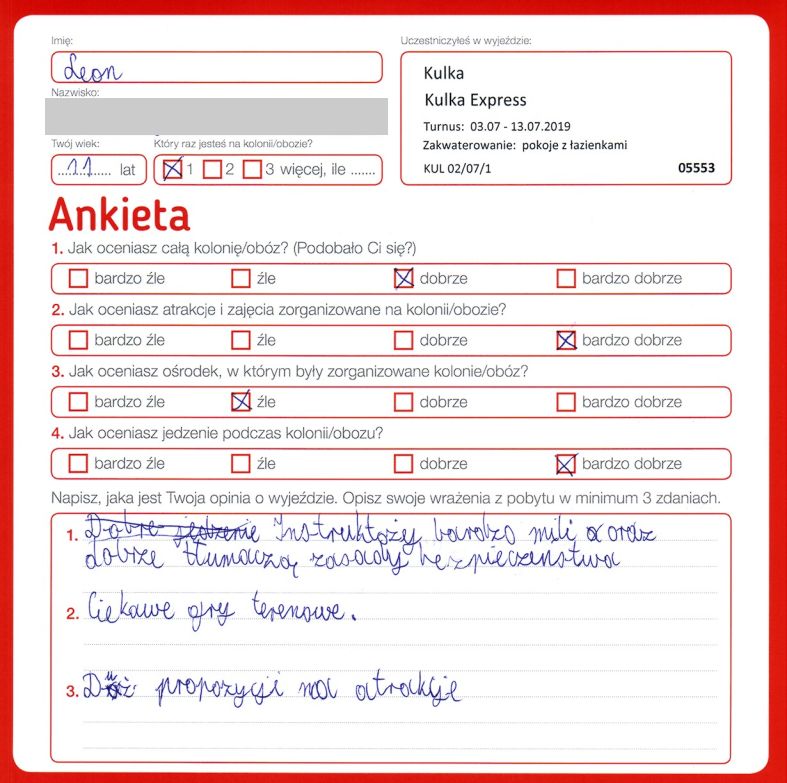 Imię:
Leon
Nazwisko:
Twój wiek:
Który raz jesteś na kolonii/obozie?
11 lat
1 2 3 więcej, ile .......
Uczestniczyłeś w wyjeździe:
Kulka
Kulka Express
Turnus: 03.07 - 13.07.2019
Zakwaterowanie: pokoje z łazienkami
KUL 02/07/1 05553
Ankieta
1. Jak oceniasz całą kolonię/obóz? (Podobało Ci się?)
bardzo źle źle dobrze bardzo dobrze
2. Jak oceniasz atrakcje i zajęcia zorganizowane na kolonii/obozie?
bardzo źle źle dobrze bardzo dobrze
3. Jak oceniasz ośrodek, w którym były zorganizowane kolonie/obóz?
bardzo źle źle dobrze bardzo dobrze
4. Jak oceniasz jedzenie podczas kolonii/obozu?
bardzo źle źle dobrze bardzo dobrze
Napisz, jaka jest Twoja opinia o wyjeździe. Opisz swoje wrażenia z pobytu w minimum 3 zdaniach.
1. Dobre jedzenie Instruktoży bardzo mili a oraz
dobrze tłumaczą zasady bezpieczeństwa
2. Ciekawe gry terenowe.
3. propozycji na atrakcje